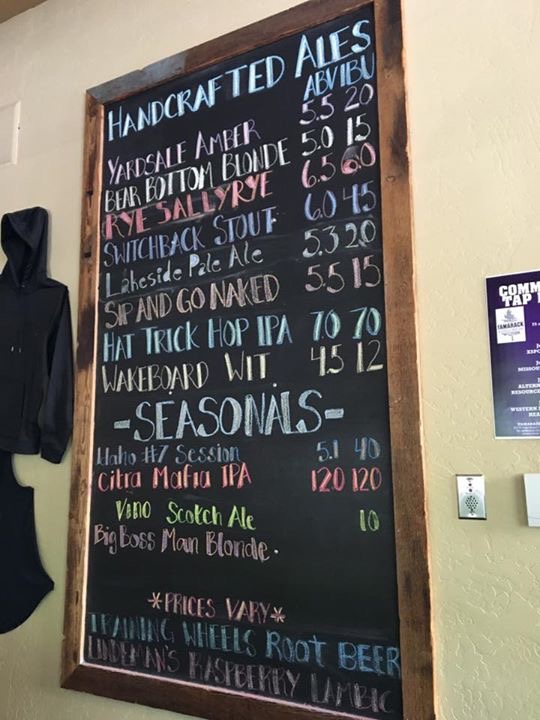 HANDCRAFTED ALES
ABV IBU
YARDSALE AMBER 5.5 20
BEAR BOTTOM BLONDE 5.0 15
RYE SALLY RYE 6.5 60
SWITCHBACK STOUT 6.0 45
Lakeside Pale Ale 5.3 20
SIP AND GO NAKED 5.5 15
HAT TRICK HOP IPA 7.0 70
WAKEBOARD WIT 4.5 12
-SEASONALS-
Idaho #7 Session 5.1 40
Citra Mafia IPA 120 120
Scotch Ale 10
Big Boss Man Blonde.
*PRICES VARY*
TRAINING WHEELS ROOT BEER
LINDEMAN'S RASPBERRY LAMBIC
COMM
TAP
TAMARACK
MISSOU
ALTERN
RESOURCE
WESTERN